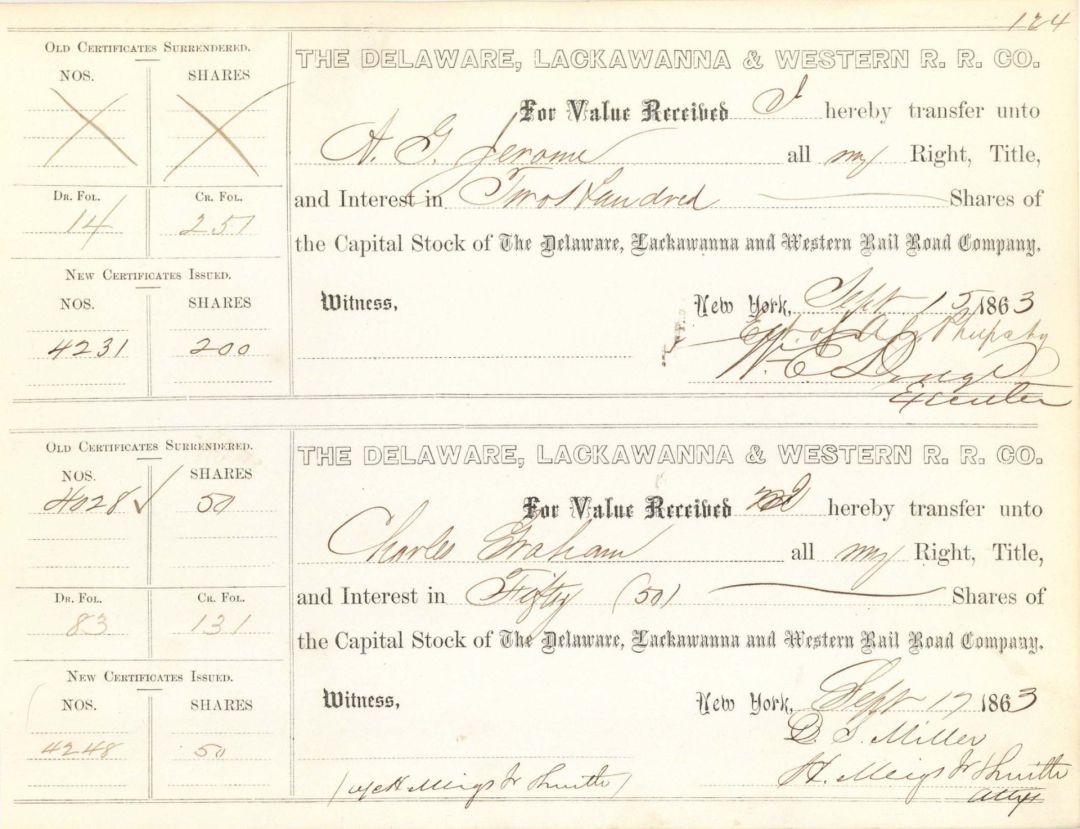 124
OLD CERTIFICATES SURRENDERED.
NOS. SHARES
DR. FOL. CR. FOL.
14 251
NEW CERTIFICATES ISSUED.
NOS. SHARES
4231 200
THE DELAWARE, LACKAWANNA & WESTERN R. R. CO.
For Value Received I hereby transfer unto
A. G. Jerome all my Right, Title,
and Interest in Two Hundred Shares of
the Capital Stock of The Delaware, Lackawanna and Western Rail Road Company.
Witness, New York, Sept 15 1863
W. E. Dodge
Executor
OLD CERTIFICATES SURRENDERED.
NOS. SHARES
4028 ✓ 50
DR. FOL. CR. FOL.
83 131
NEW CERTIFICATES ISSUED.
NOS. SHARES
4248 50
THE DELAWARE, LACKAWANNA & WESTERN R. R. CO.
For Value Received I hereby transfer unto
Charles Graham all my Right, Title,
and Interest in Fifty (50) Shares of
the Capital Stock of The Delaware, Lackawanna and Western Rail Road Company.
Witness, New York, Sept 17 1863
D. S. Miller
H. Meigs Jr & Smith
Attys
H Meigs Jr & Smith